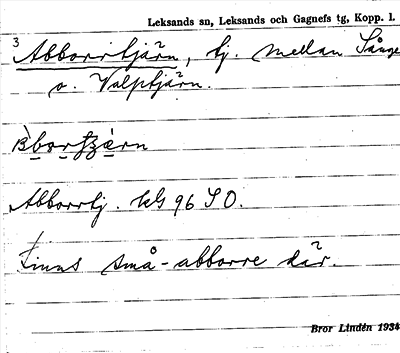 Leksands sn, Leksands och Gagnefs tg, Kopp. l.
3 Abborrtjärn, tj. mellan Långe
o. Valptjärn.
Abborrtj. kbl 96 S O.
Finns små-abborre där.
Bror Lindén 1934